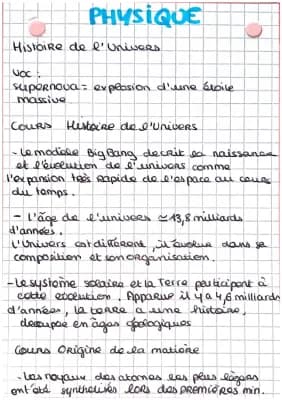 PHYSIQUE
Histoire de l'Univers
VOC :
supernova = explosion d'une étoile
massive
Cours Histoire de l'Univers
- Le modèle Big Bang decrit la naissance
et l'évolution de l'univers comme
l'expansion très rapide de l'espace au cours
du temps.
- l'âge de l'univers ≃ 13,8 milliards
d'années.
L'Univers est différent, il évolue dans sa
composition et son organisation.
- Le système solaire et la Terre participent à
cette évolution. Apparue il y a 4,6 milliards
d'années, la terre a une histoire,
découpée en âges géologiques
Cours Origine de la matière
- Les noyaux des atomes les plus légers
ont été synthétisés lors des premières min.